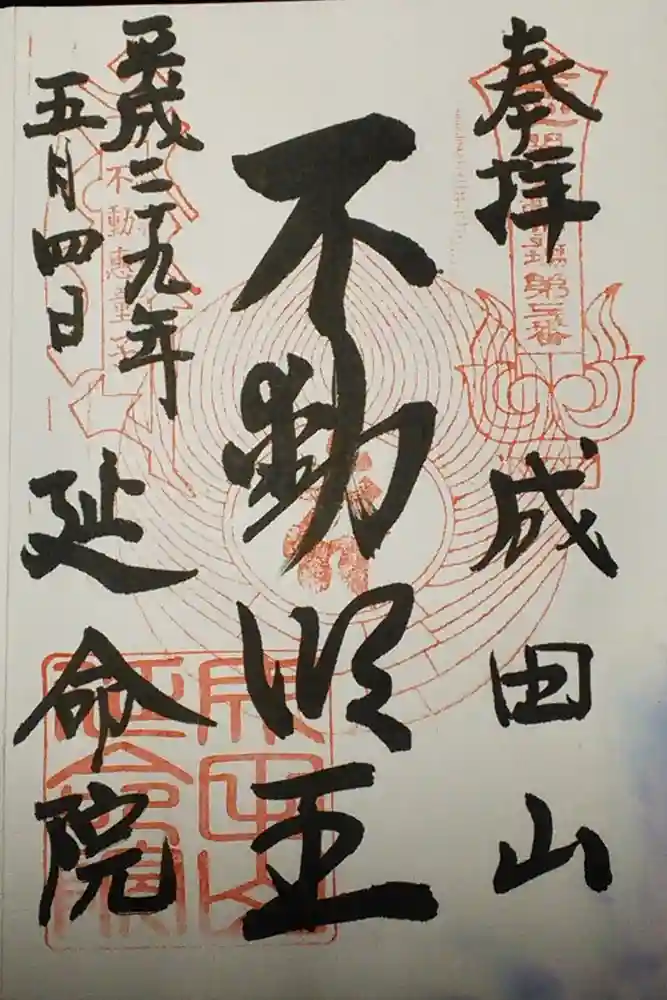 奉拝
成田山
不動明王
平成二十九年
五月四日
延命院
第三番
不動恵童子
成田山
延命院